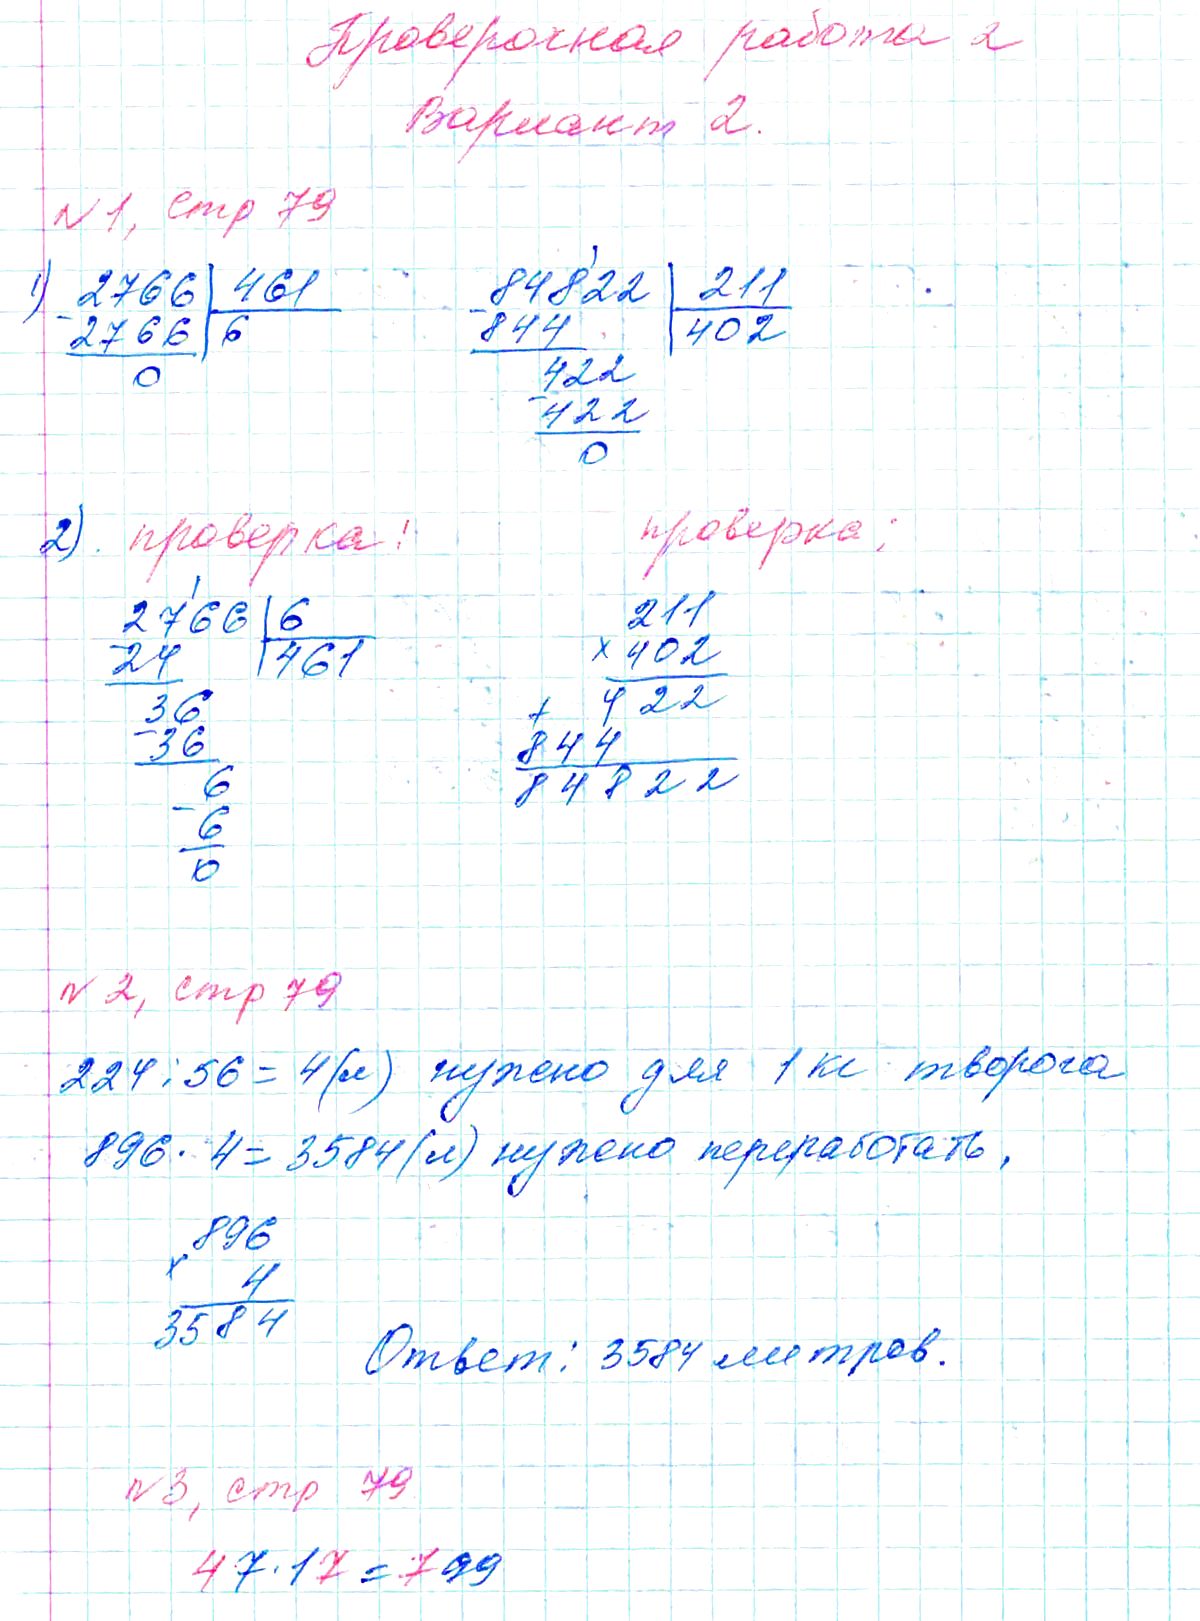 Проверочная работа 2
Вариант 2.
№1, стр 79
1) 2766 | 461
- 2766 | 6
0
84822 | 211
- 844 | 402
422
- 422
0
2). проверка:
2766 | 6
- 24 | 461
36
- 36
6
- 6
0
проверка:
211
× 402
+ 422
844
84822
№2, стр 79
224:56=4(л) нужно для 1 кг творога
896·4=3584(л) нужно переработать.
896
× 4
3584
Ответ: 3584 литров.
№3, стр 79
47·17=799